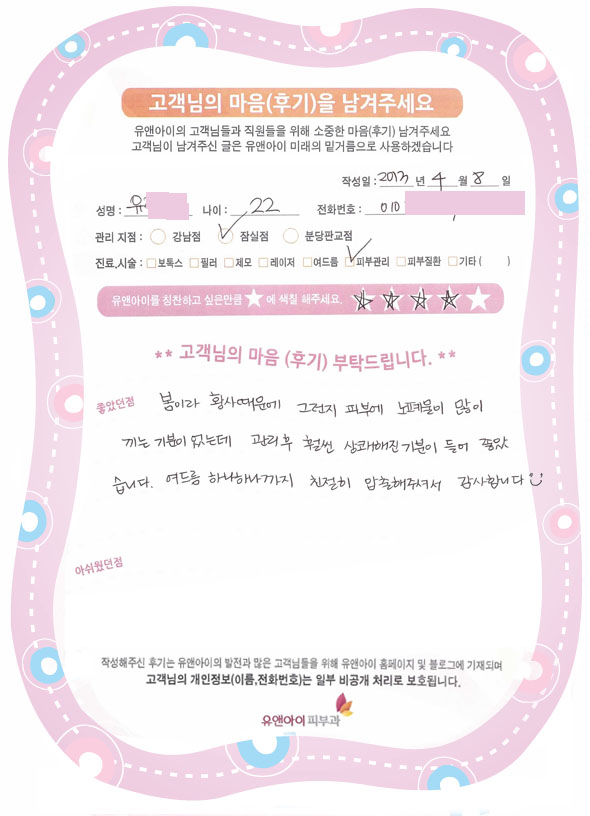 고객님의 마음(후기)을 남겨주세요
유앤아이의 고객님들과 직원들을 위해 소중한 마음(후기) 남겨주세요
고객님이 남겨주신 글은 유앤아이 미래의 밑거름으로 사용하겠습니다
작성일 : 2013 년 4 월 8 일
성명 : 유 나이 : 22 전화번호 : 010
관리 지점 : 강남점 잠실점 분당판교점
진료,시술 : 보톡스 필러 제모 레이저 여드름 피부관리 피부질환 기타 ( )
유앤아이를 칭찬하고 싶은만큼 ★ 에 색칠 해주세요. ★★★★★
** 고객님의 마음 (후기) 부탁드립니다. **
좋았던점
봄이라 황사때문에 그런지 피부에 노폐물이 많이
끼는 기분이 있는데 관리후 훨씬 상쾌해진 기분이 들어 좋았
습니다. 여드름 하나하나까지 친절히 압출해주셔서 감사합니다
아쉬웠던점
작성해주신 후기는 유앤아이의 발전과 많은 고객님들을 위해 유앤아이 홈페이지 및 블로그에 기재되며
고객님의 개인정보(이름,전화번호)는 일부 비공개 처리로 보호됩니다.
유앤아이 피부과